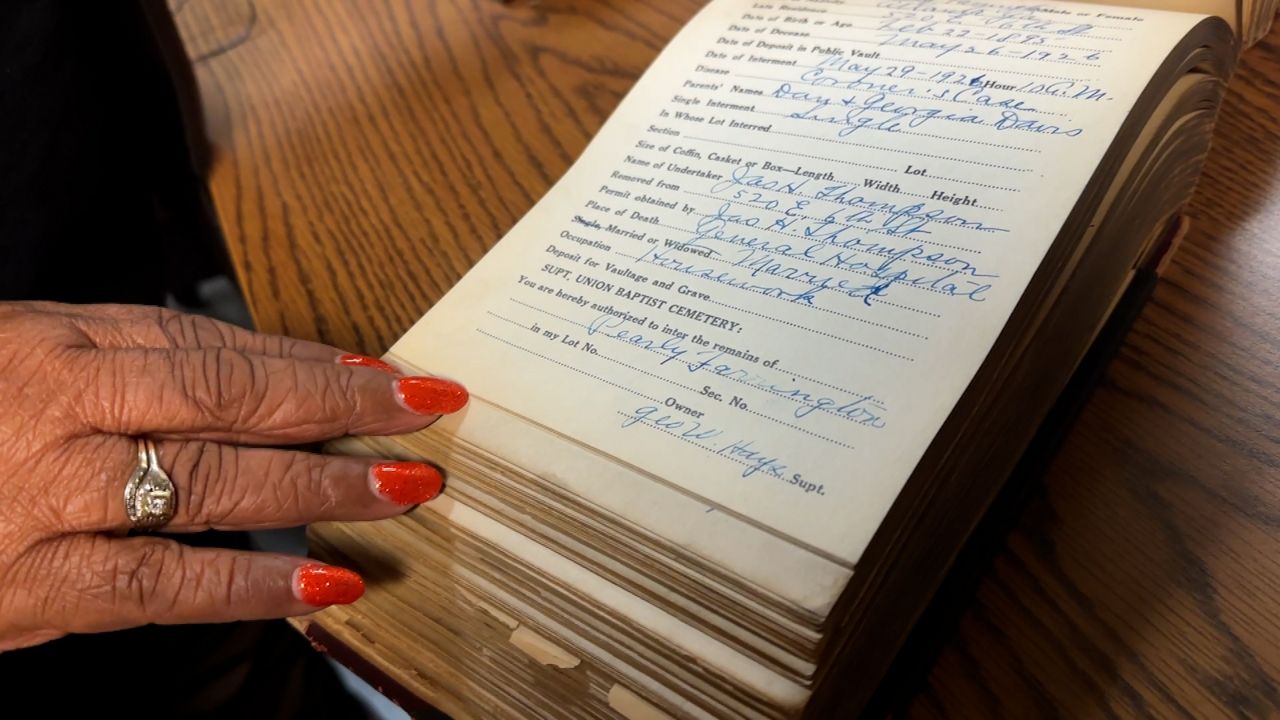 Male or Female
Late Residence 520 E. 6th St
Date of Birth or Age Feb 22-1895
Date of Decease May 26-1926
Date of Deposit in Public Vault
Date of Interment May 29-1926 Hour 10 A.M.
Disease Cortner's Case
Parents' Names Dan + Georgia Davis
Single Interment Single
In Whose Lot Interred
Section Lot
Size of Coffin, Casket or Box—Length Width Height
Name of Undertaker Jas H. Thompson
Removed from 520 E. 6th St
Permit obtained by Jas H. Thompson
Place of Death General Hospital
Single, Married or Widowed Married
Occupation Housework
Deposit for Vaultage and Grave
SUPT. UNION BAPTIST CEMETERY:
You are hereby authorized to inter the remains of
Pearly Farrington
in my Lot No. Sec. No.
Owner
Geo W. Hays Supt.